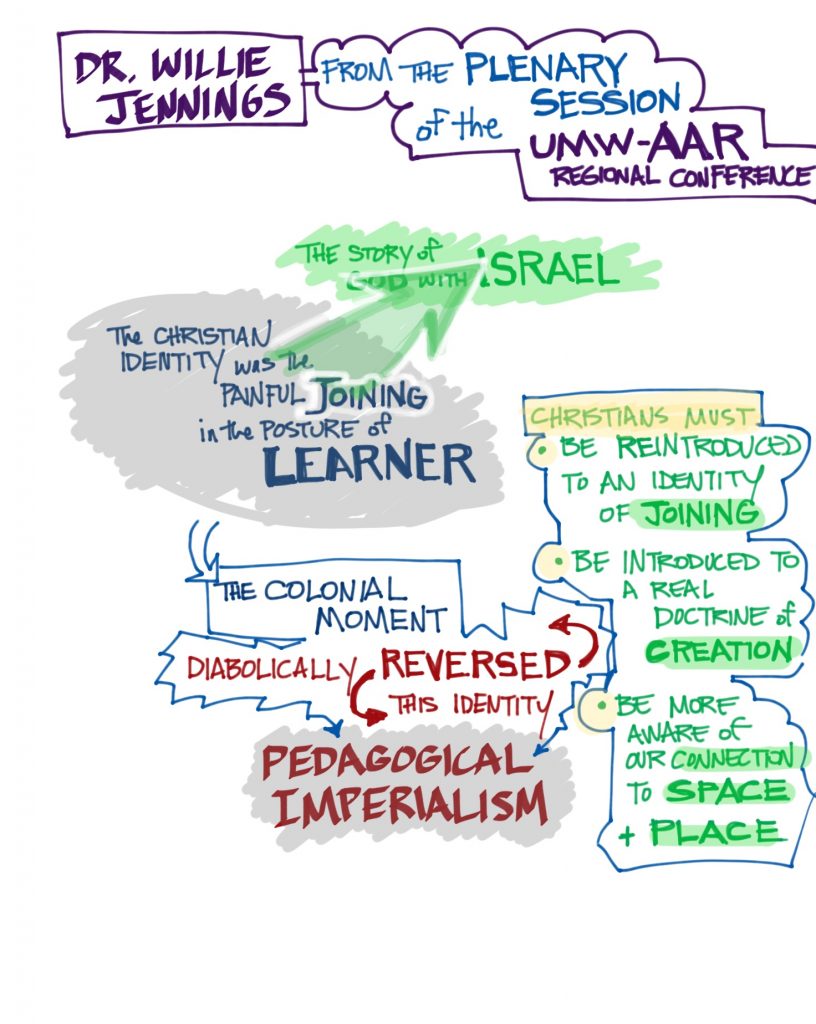 DR. WILLIE
JENNINGS
FROM THE PLENARY
SESSION
of the
UMW-AAR
REGIONAL CONFERENCE
THE STORY of
GOD WITH ISRAEL
The CHRISTIAN
IDENTITY was the
PAINFUL JOINING
in the POSTURE of
LEARNER
THE COLONIAL
MOMENT
DIABOLICALLY REVERSED
THIS IDENTITY
PEDAGOGICAL
IMPERIALISM
CHRISTIANS MUST
• BE REINTRODUCED
TO AN IDENTITY
OF JOINING
• BE INTRODUCED TO
A REAL
DOCTRINE of
CREATION
• BE MORE
AWARE OF
OUR CONNECTION
TO SPACE
+ PLACE